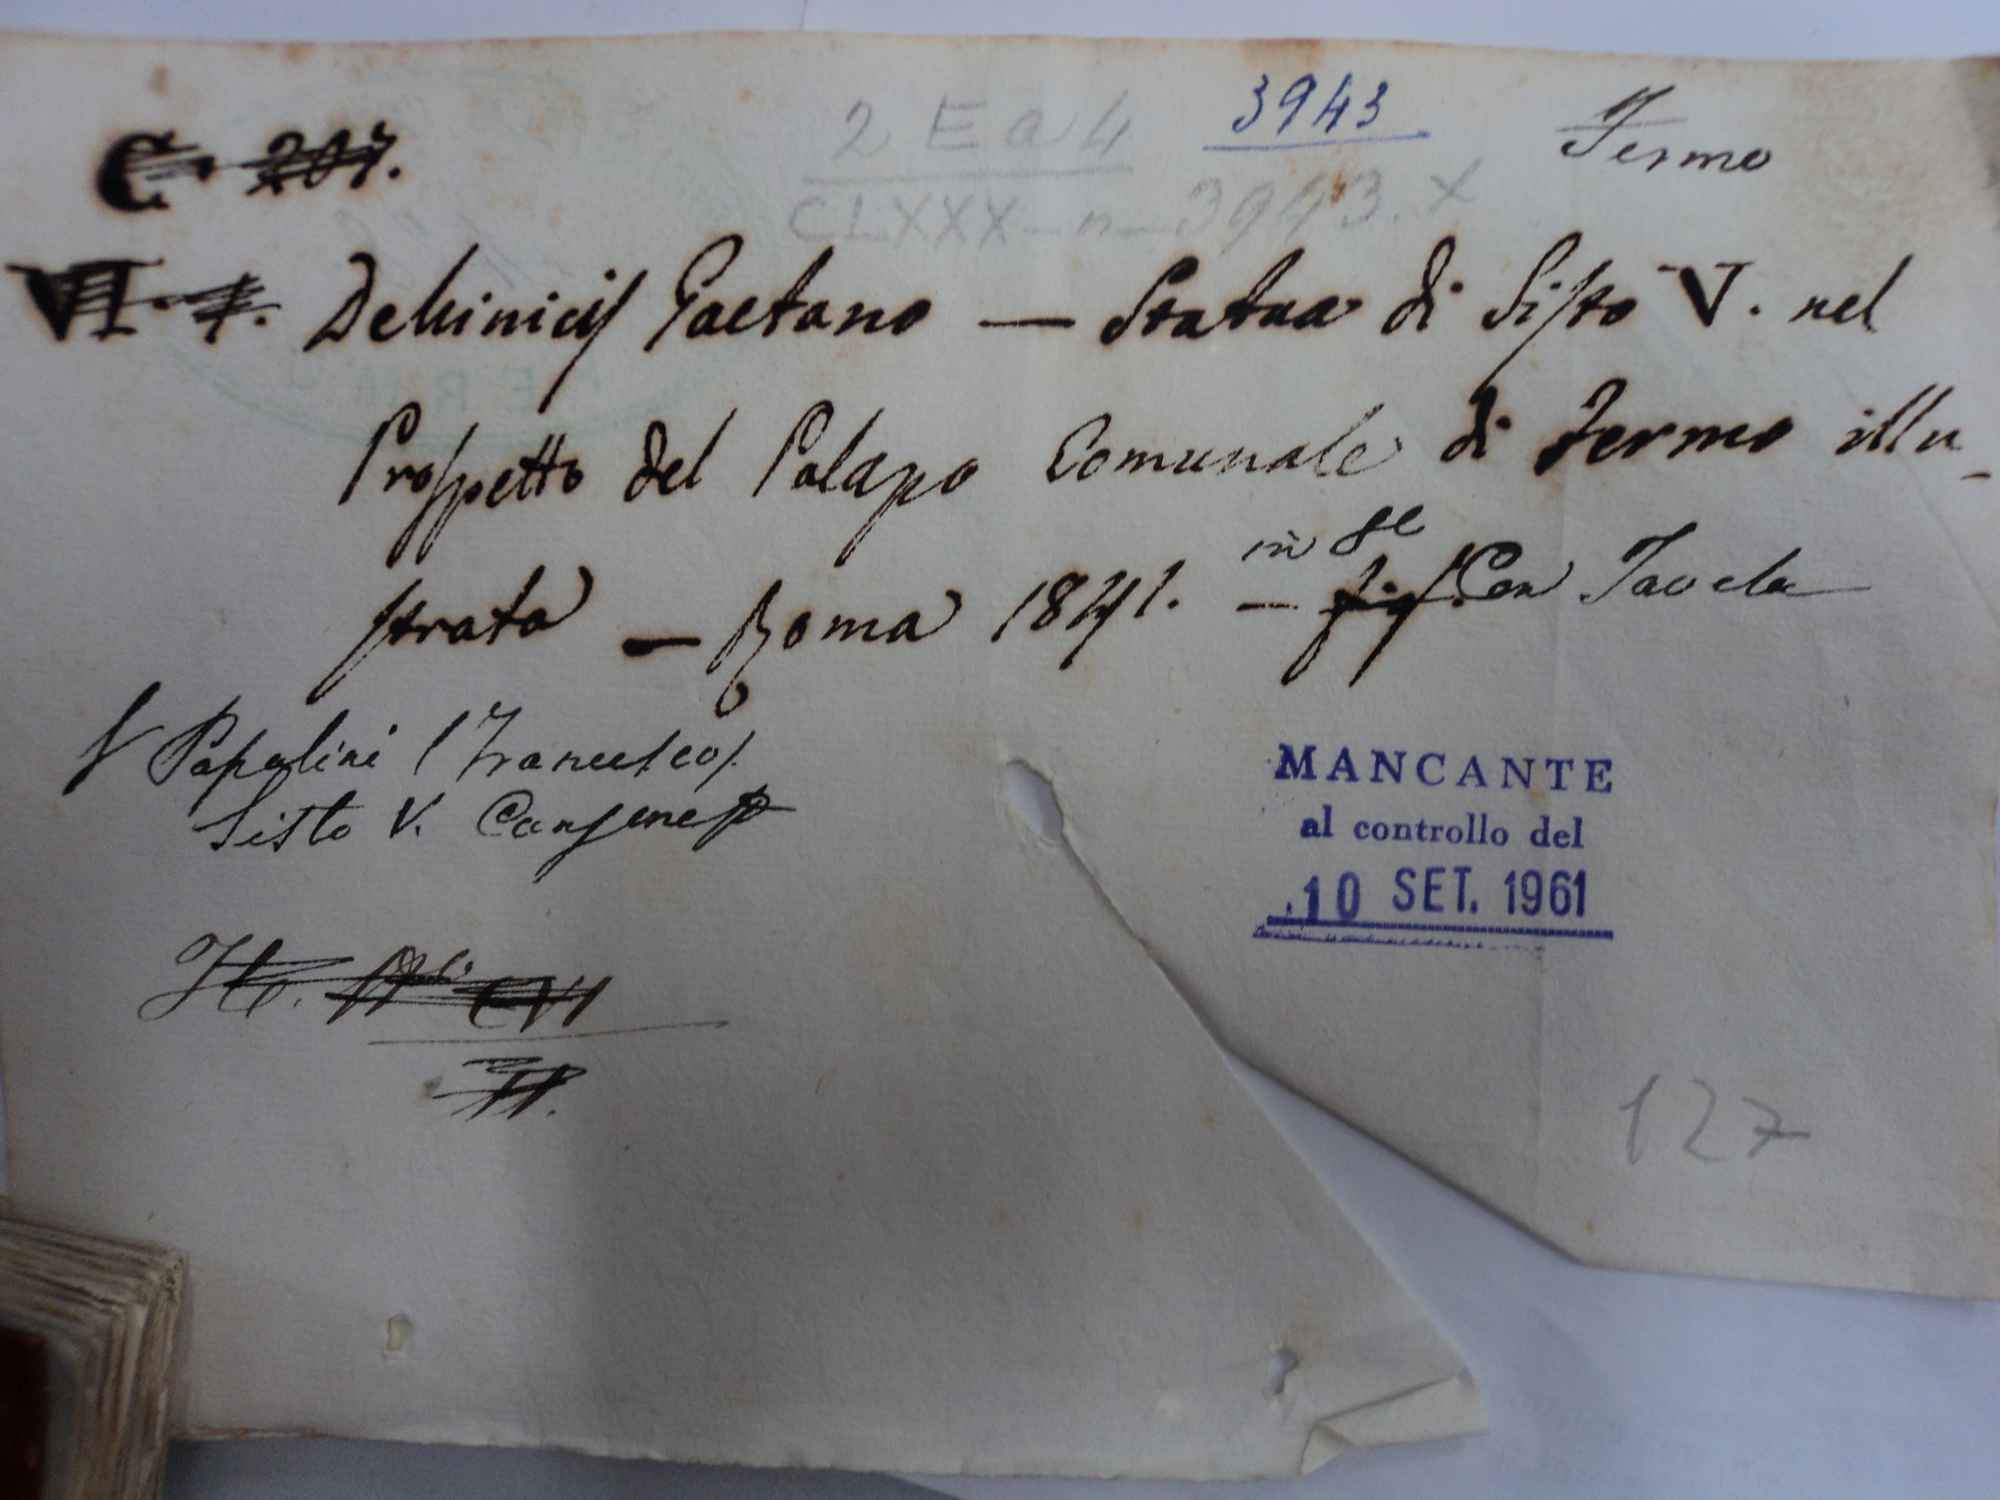 C. 207.
2 E a 4
3943
Fermo
CLXXX - n - 3943. x
VI. 7. DeMinicis Gaetano — Statua di Sisto V. nel
Prospetto del Palazzo Comunale di Fermo illu-
strata — Roma 1841. — in 8e fig. Con Tavola
V Papalini (Francesco).
Sisto V. Canzone
MANCANTE
al controllo del
10 SET. 1961
127